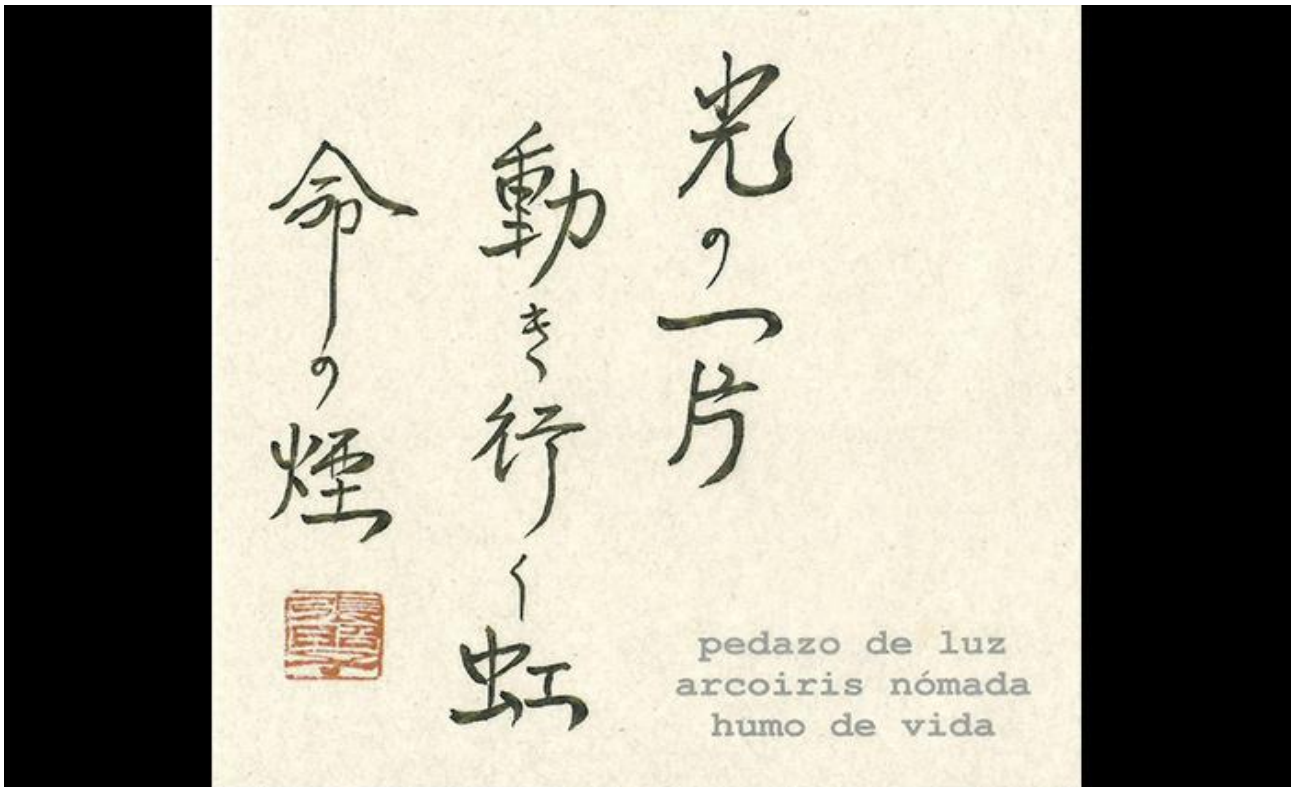 光の一片
動き行く虹
命の煙
pedazo de luz
arcoiris nómada
humo de vida